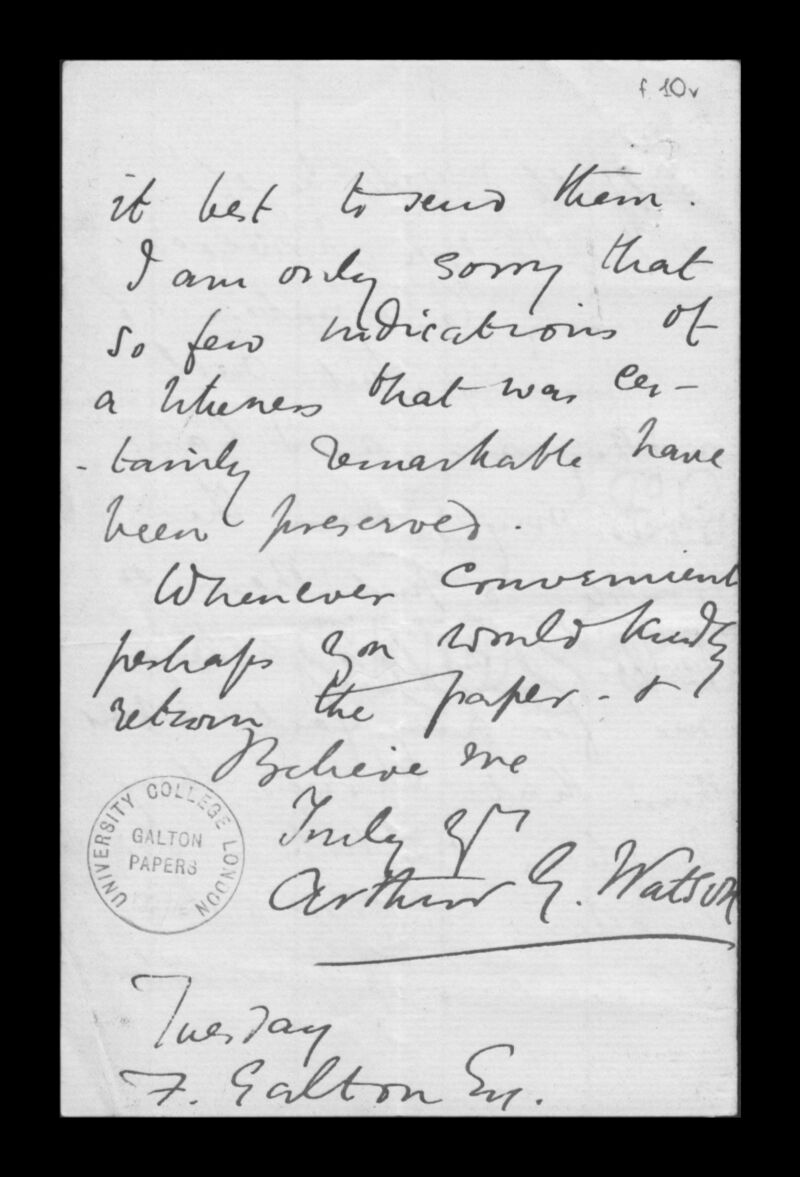 f 10v
it best to send them.
I am only sorry that
so few indications of
a likeness that was cer-
-tainly remarkable have
been preserved.
Whenever convenient
perhaps you would kindly
return the paper - &
Believe me
Truly yrs
Arthur G. Watson
UNIVERSITY COLLEGE LONDON
GALTON
PAPERS
Tuesday
F. Galton Esq.